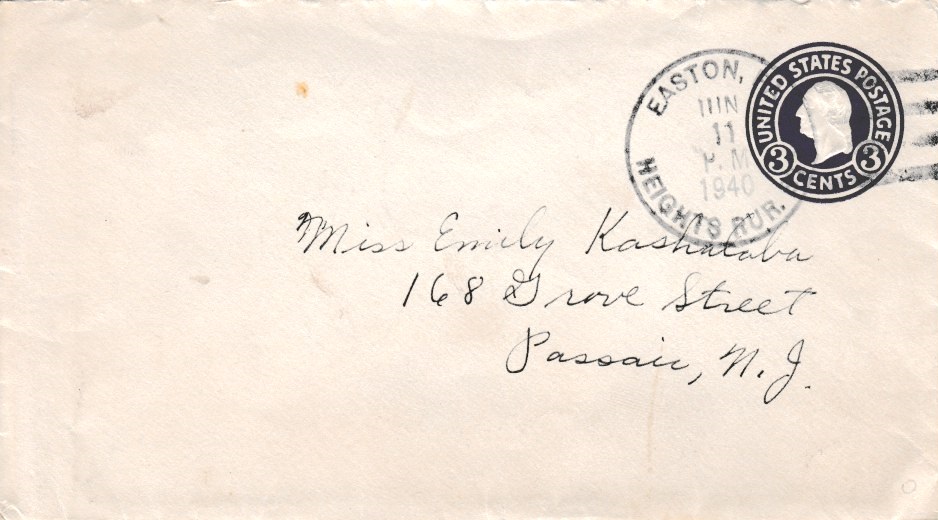 EASTON,
JUN
11
P.M
1940
HEIGHTS RUR.
UNITED STATES POSTAGE
3 CENTS 3
Miss Emily Kashataba
168 Grove Street
Passaic, N. J.